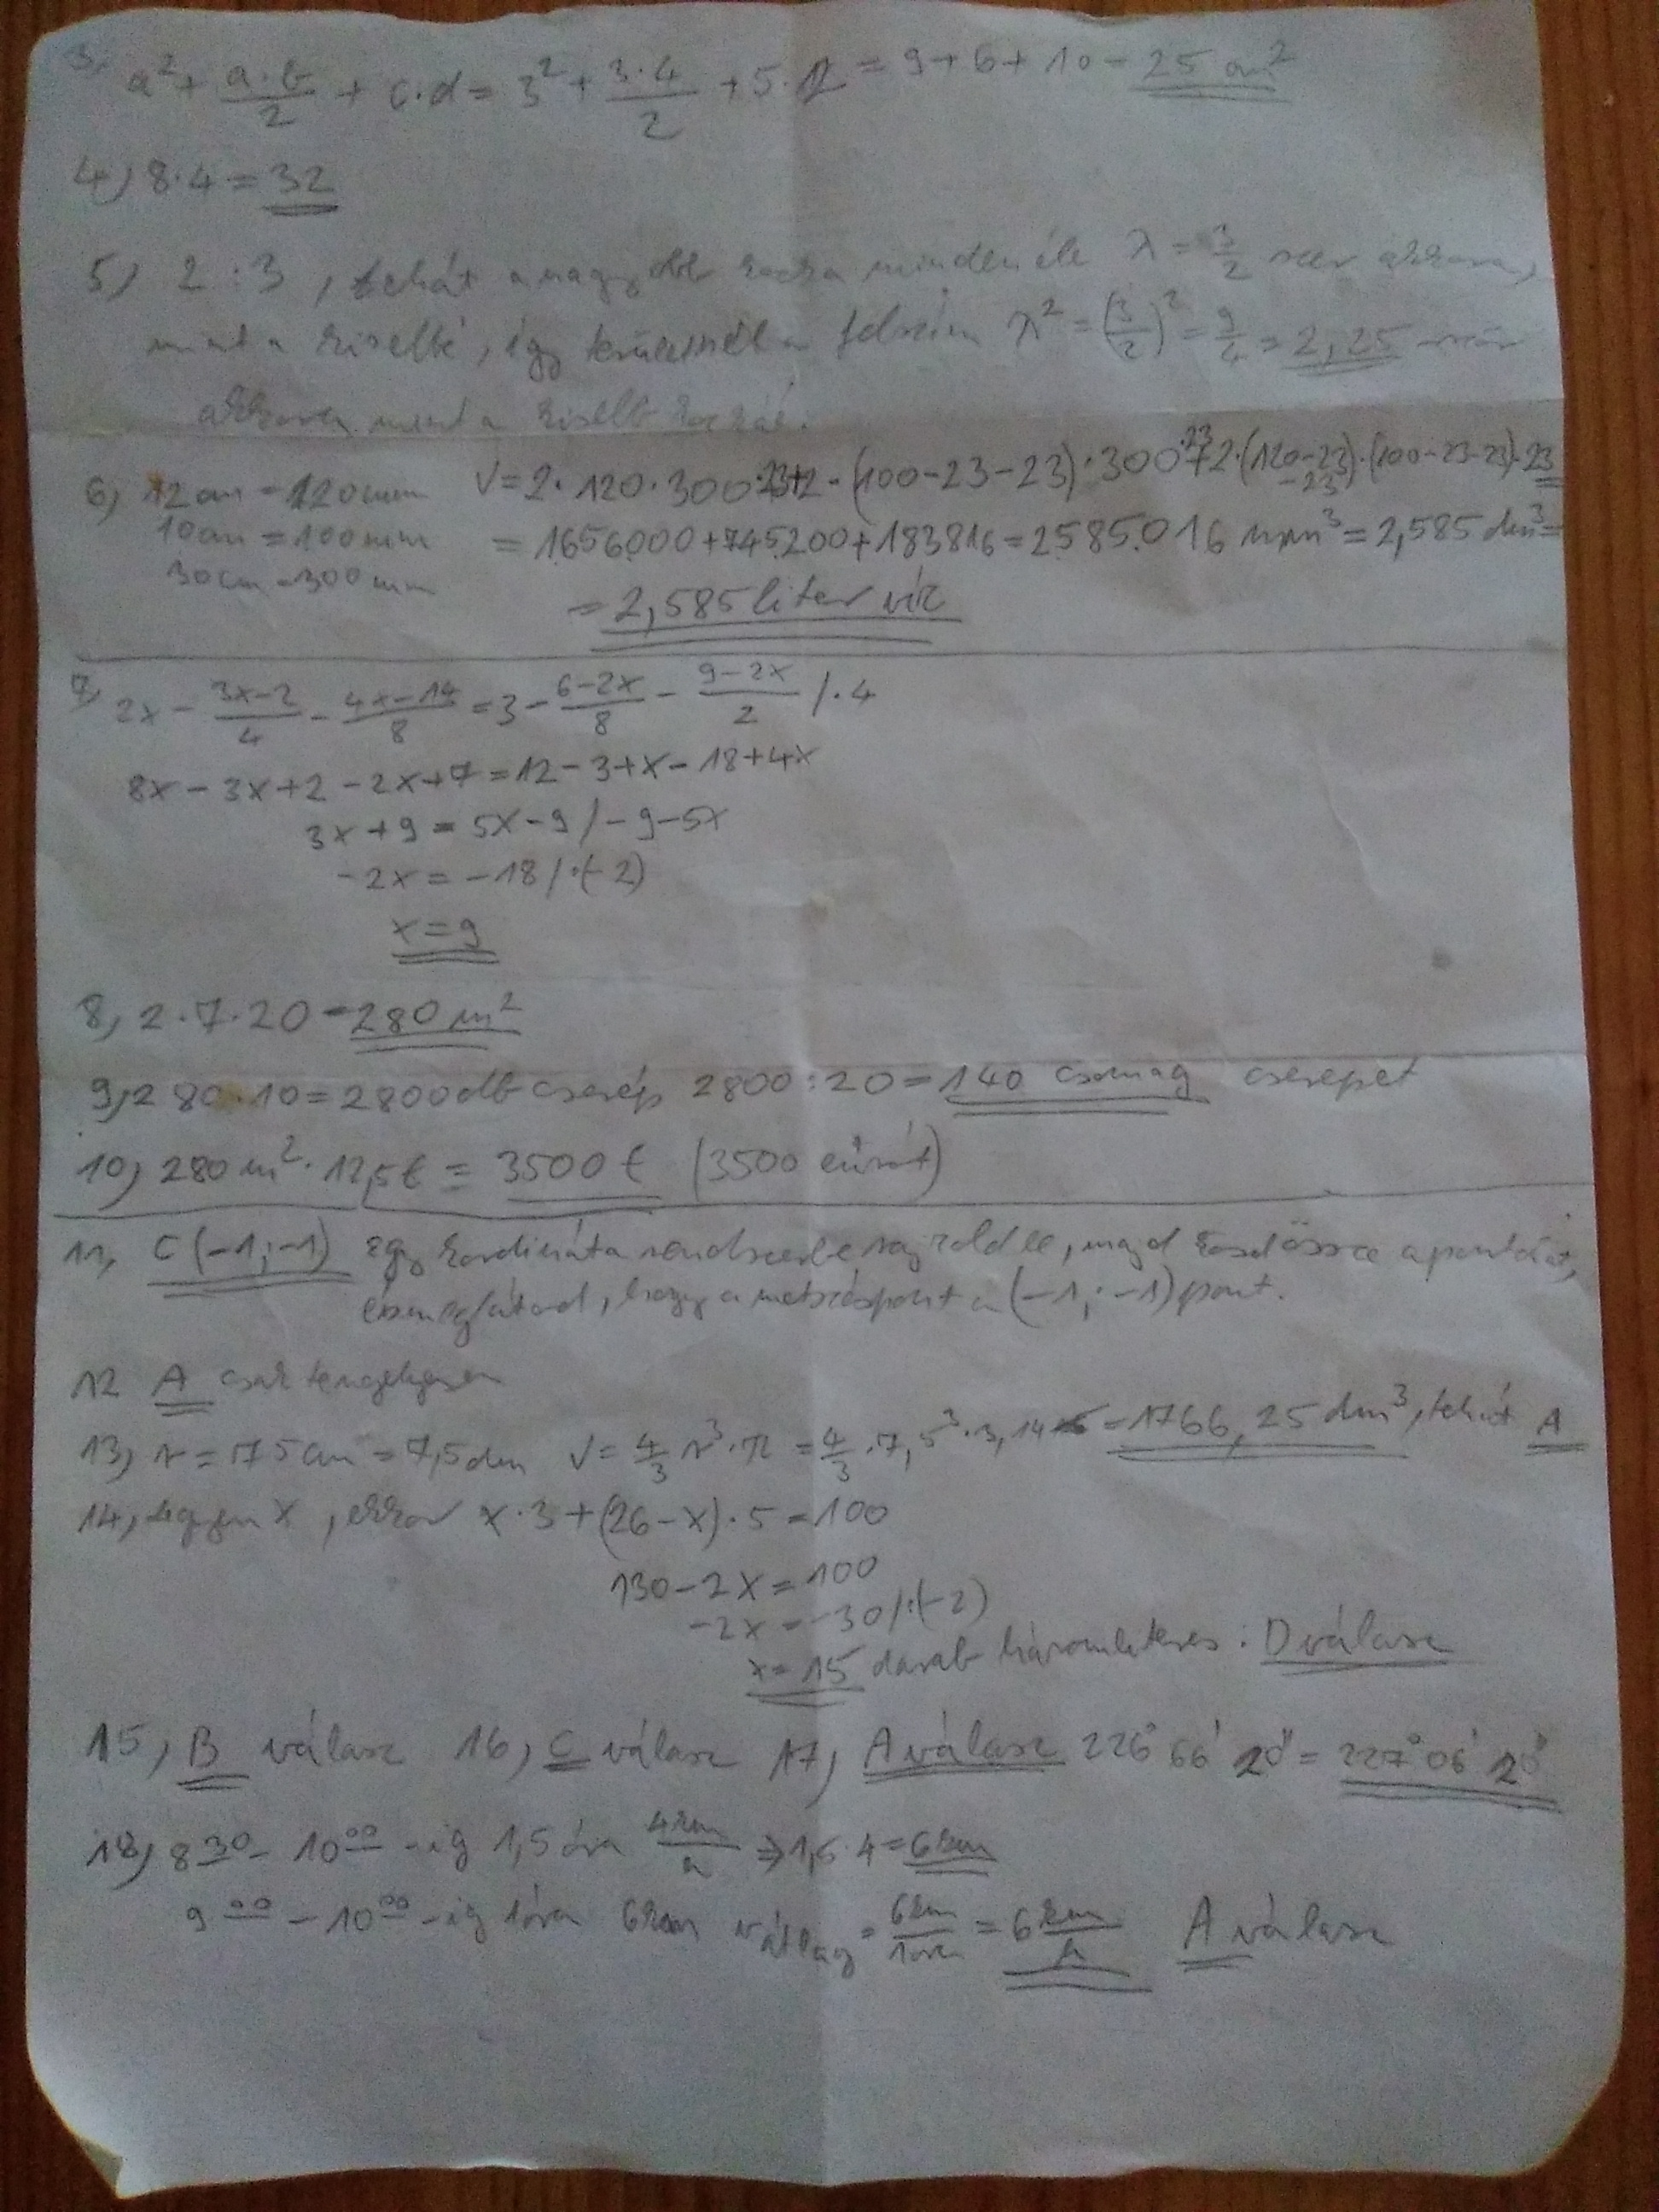 3, a² + a·b/2 + c·d = 3² + 3·4/2 + 5·2 = 9+6+10 = 25 cm²
4, 8·4 = 32
5, 2:3, tehát a nagyobb kocka minden éle λ = 3/2 szer akkora,
mint a kisebbé, így a felszín λ² = (3/2)² = 9/4 = 2,25 -ször
akkora mint a kisebb kockáé.
6, 12cm = 120mm V = 2·120·300·23+2·(100-23-23)·300·23+2·(120-23-23)·(100-23-23)·23
10cm = 100mm = 1656000+745200+183816 = 2585016 mm³ = 2,585 dm³ =
30cm = 300mm = 2,585 liter víz
7, 2x - 3x-2/4 - 4x-14/8 = 3 - 6-2x/8 - 9-2x/2 /·4
8x-3x+2-2x+7 = 12-3+x-18+4x
3x+9 = 5x-9 /-9-5x
-2x = -18 /:(-2)
x = 9
8, 2·7·20 = 280 m²
9, 280·10 = 2800 db cserép 2800:20 = 140 csomag cserepet
10, 280 m²·12,5€ = 3500€ (3500 eurót)
11, C(-1;-1) Egy kordináta rendszerbe rajzold le, majd kösd össze a pontokat,
és meglátod, hogy a metszéspont a (-1;-1) pont.
12 A csak tengelyesen
13, r = 75cm = 7,5dm V = 4/3 r³·π = 4/3·7,5³·3,14 = 1766,25 dm³, tehát A
14, legyen x, ekkor x·3+(26-x)·5 = 100
130-2x = 100
-2x = -30 /:(-2)
x = 15 darab háromliteres: D válasz
15, B válasz 16, C válasz 17, A válasz 226° 66' 20" = 227° 06' 20"
18, 8 30 - 10 00 -ig 1,5 óra 4km/h ⇒ 1,5·4 = 6km
9 00 - 10 00 -ig 1óra 6km vátlag = 6km/1óra = 6 km/h A válasz